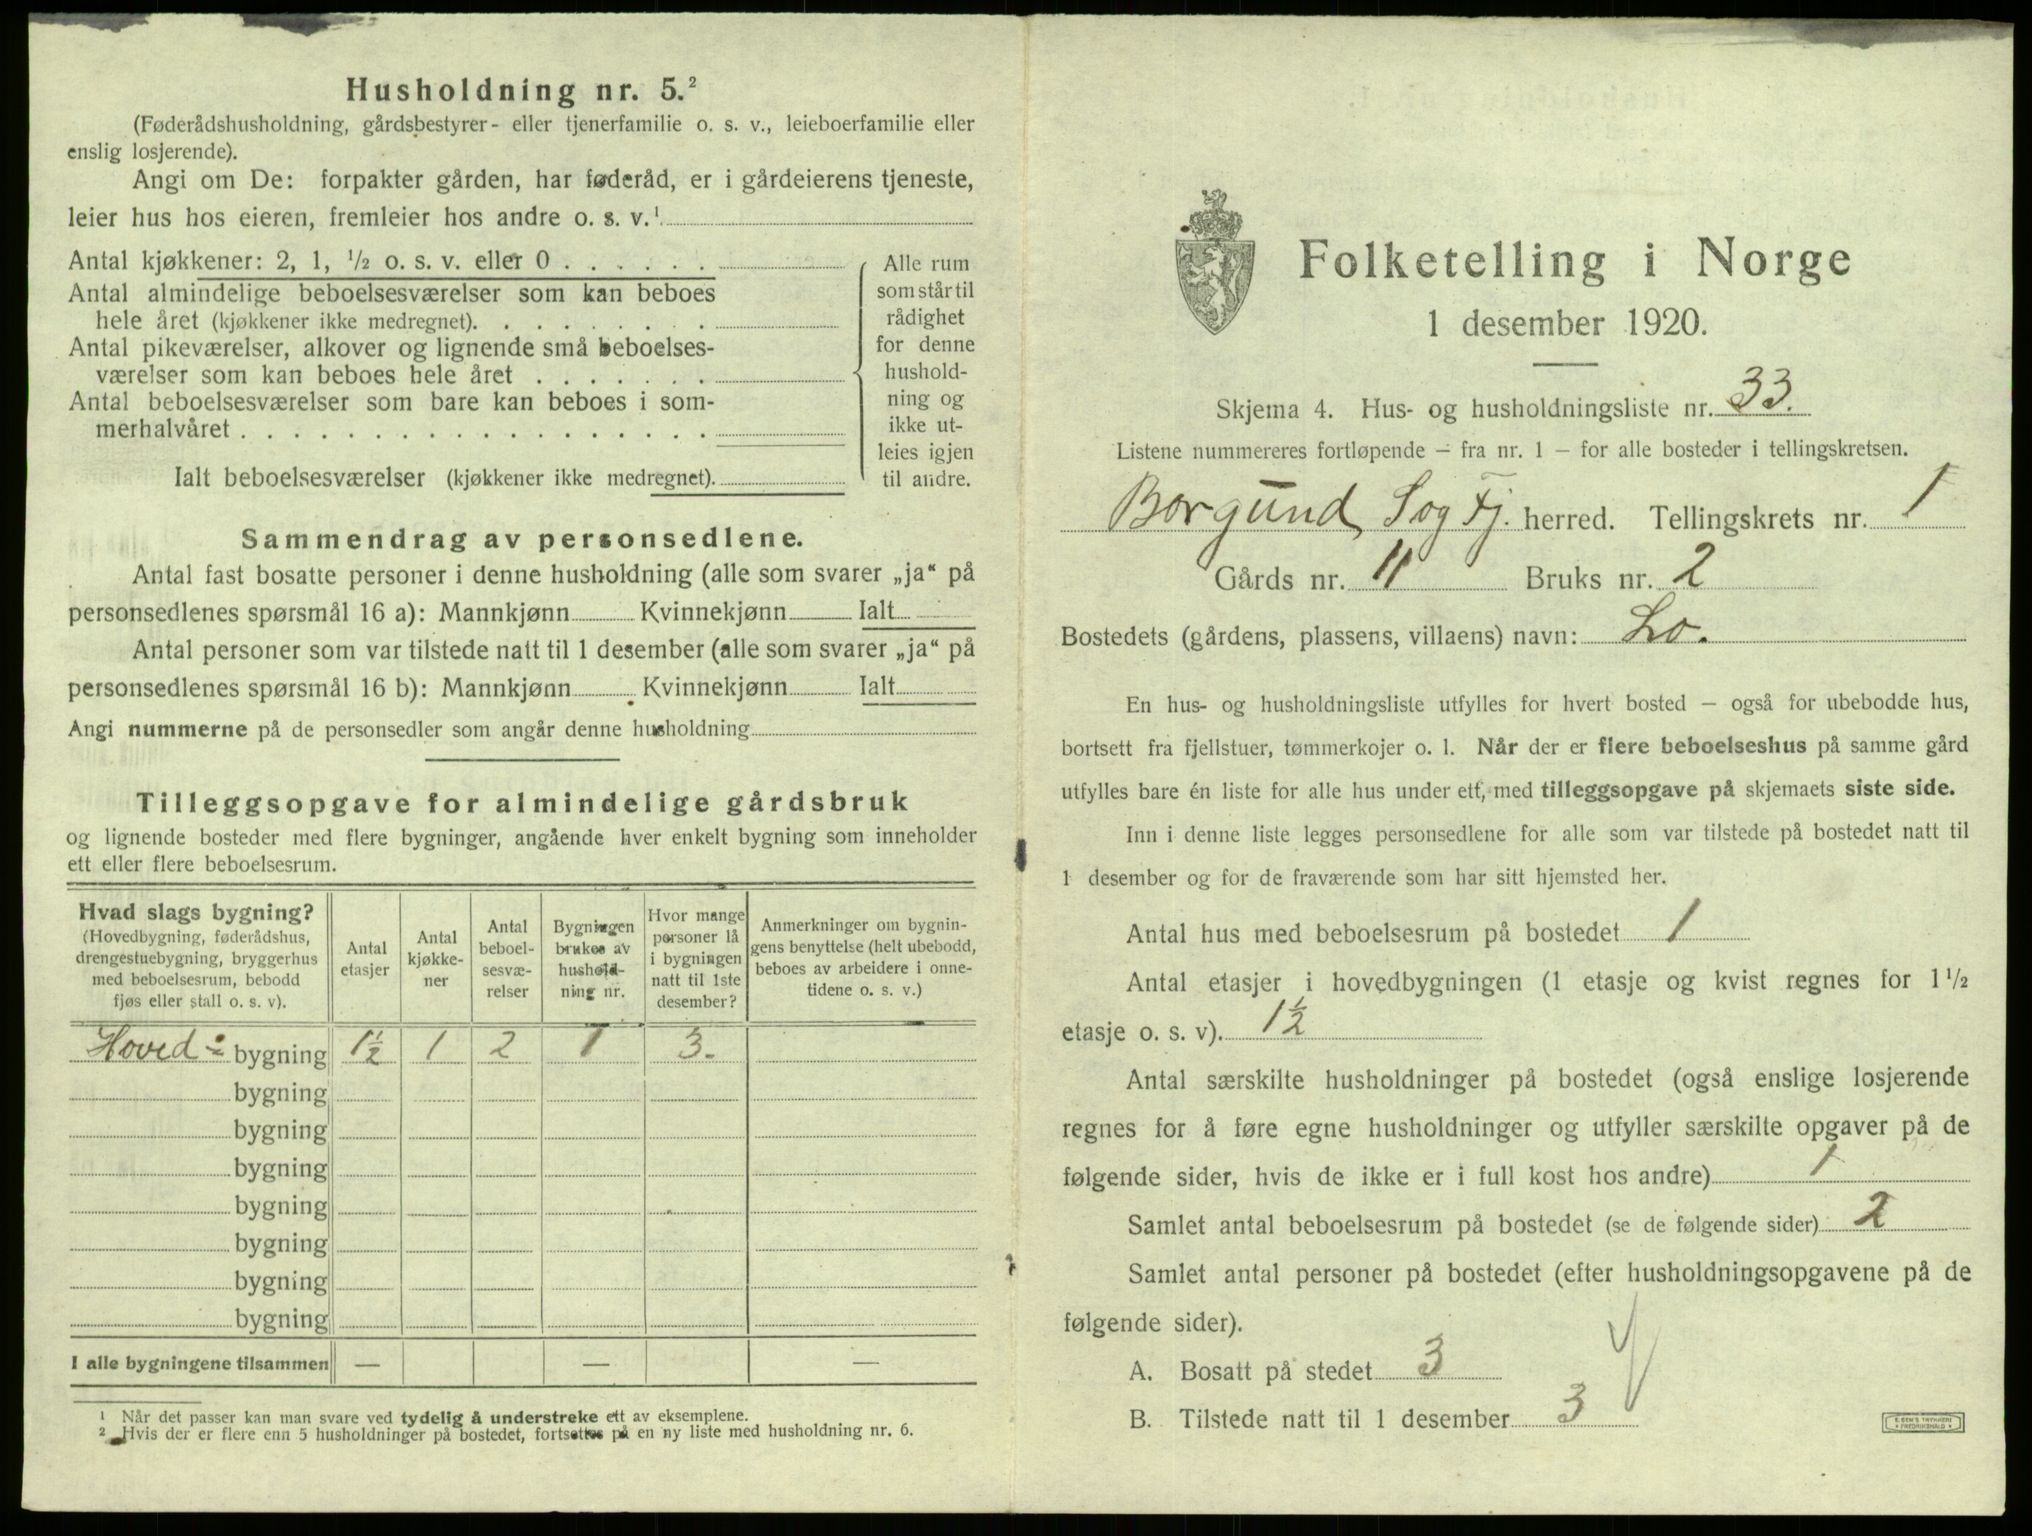 Husholdning nr. 5.²
(Føderådshusholdning, gårdsbestyrer- eller tjenerfamilie o. s. v., leieboerfamilie eller
enslig losjerende).
Angi om De: forpakter gården, har føderåd, er i gårdeierens tjeneste,
leier hus hos eieren, fremleier hos andre o. s. v.¹
Antal kjøkkener: 2, 1, ½ o. s. v. eller 0 . . . . . .
Antal almindelige beboelsesværelser som kan beboes
hele året (kjøkkener ikke medregnet). . . . . . . .
Antal pikeværelser, alkover og lignende små beboelses-
værelser som kan beboes hele året . . . . . . .
Antal beboelsesværelser som bare kan beboes i som-
merhalvåret . . . . . . . . . . . . . . . . . .
Ialt beboelsesværelser (kjøkkener ikke medregnet).
Alle rum
som står til
rådighet
for denne
hushold-
ning og
ikke ut-
leies igjen
til andre.
Sammendrag av personsedlene.
Antal fast bosatte personer i denne husholdning (alle som svarer „ja“ på
personsedlenes spørsmål 16 a): Mannkjønn Kvinnekjønn Ialt
Antal personer som var tilstede natt til 1 desember (alle som svarer „ja“ på
personsedlenes spørsmål 16 b): Mannkjønn Kvinnekjønn Ialt
Angi nummerne på de personsedler som angår denne husholdning
Tilleggsopgave for almindelige gårdsbruk
og lignende bosteder med flere bygninger, angående hver enkelt bygning som inneholder
ett eller flere beboelsesrum.
Hvad slags bygning?
(Hovedbygning, føderådshus,
drengestuebygning, bryggerhus
med beboelsesrum, bebodd
fjøs eller stall o. s. v).
Antal
etasjer
Antal
kjøkke-
ner
Antal
beboel-
sesvæ-
relser
Bygningen
brukes av
hushold-
ning nr.
Hvor mange
personer lå
i bygningen
natt til 1ste
desember?
Anmerkninger om bygnin-
gens benyttelse (helt ubebodd,
beboes av arbeidere i onne-
tidene o. s. v.)
Hoved- bygning 1½ 1 2 1 3.
bygning
bygning
bygning
bygning
bygning
bygning
bygning
I alle bygningene tilsammen — — —
¹ Når det passer kan man svare ved tydelig å understreke ett av eksemplene.
² Hvis der er flere enn 5 husholdninger på bostedet, fortsettes på en ny liste med husholdning nr. 6.
Folketelling i Norge
1 desember 1920.
Skjema 4. Hus- og husholdningsliste nr. 33.
Listene nummereres fortløpende – fra nr. 1 – for alle bosteder i tellingskretsen.
Borgund, Sog Fj. herred. Tellingskrets nr. 1
Gårds nr. 11 Bruks nr. 2
Bostedets (gårdens, plassens, villaens) navn: Lo.
En hus- og husholdningsliste utfylles for hvert bosted – også for ubebodde hus,
bortsett fra fjellstuer, tømmerkojer o. l. Når der er flere beboelseshus på samme gård
utfylles bare én liste for alle hus under ett, med tilleggsopgave på skjemaets siste side.
Inn i denne liste legges personsedlene for alle som var tilstede på bostedet natt til
1 desember og for de fraværende som har sitt hjemsted her.
Antal hus med beboelsesrum på bostedet 1
Antal etasjer i hovedbygningen (1 etasje og kvist regnes for 1½
etasje o. s. v). 1½
Antal særskilte husholdninger på bostedet (også enslige losjerende
regnes for å føre egne husholdninger og utfyller særskilte opgaver på de
følgende sider, hvis de ikke er i full kost hos andre) 1
Samlet antal beboelsesrum på bostedet (se de følgende sider) 2
Samlet antal personer på bostedet (efter husholdningsopgavene på de
følgende sider).
A. Bosatt på stedet 3
B. Tilstede natt til 1 desember 3